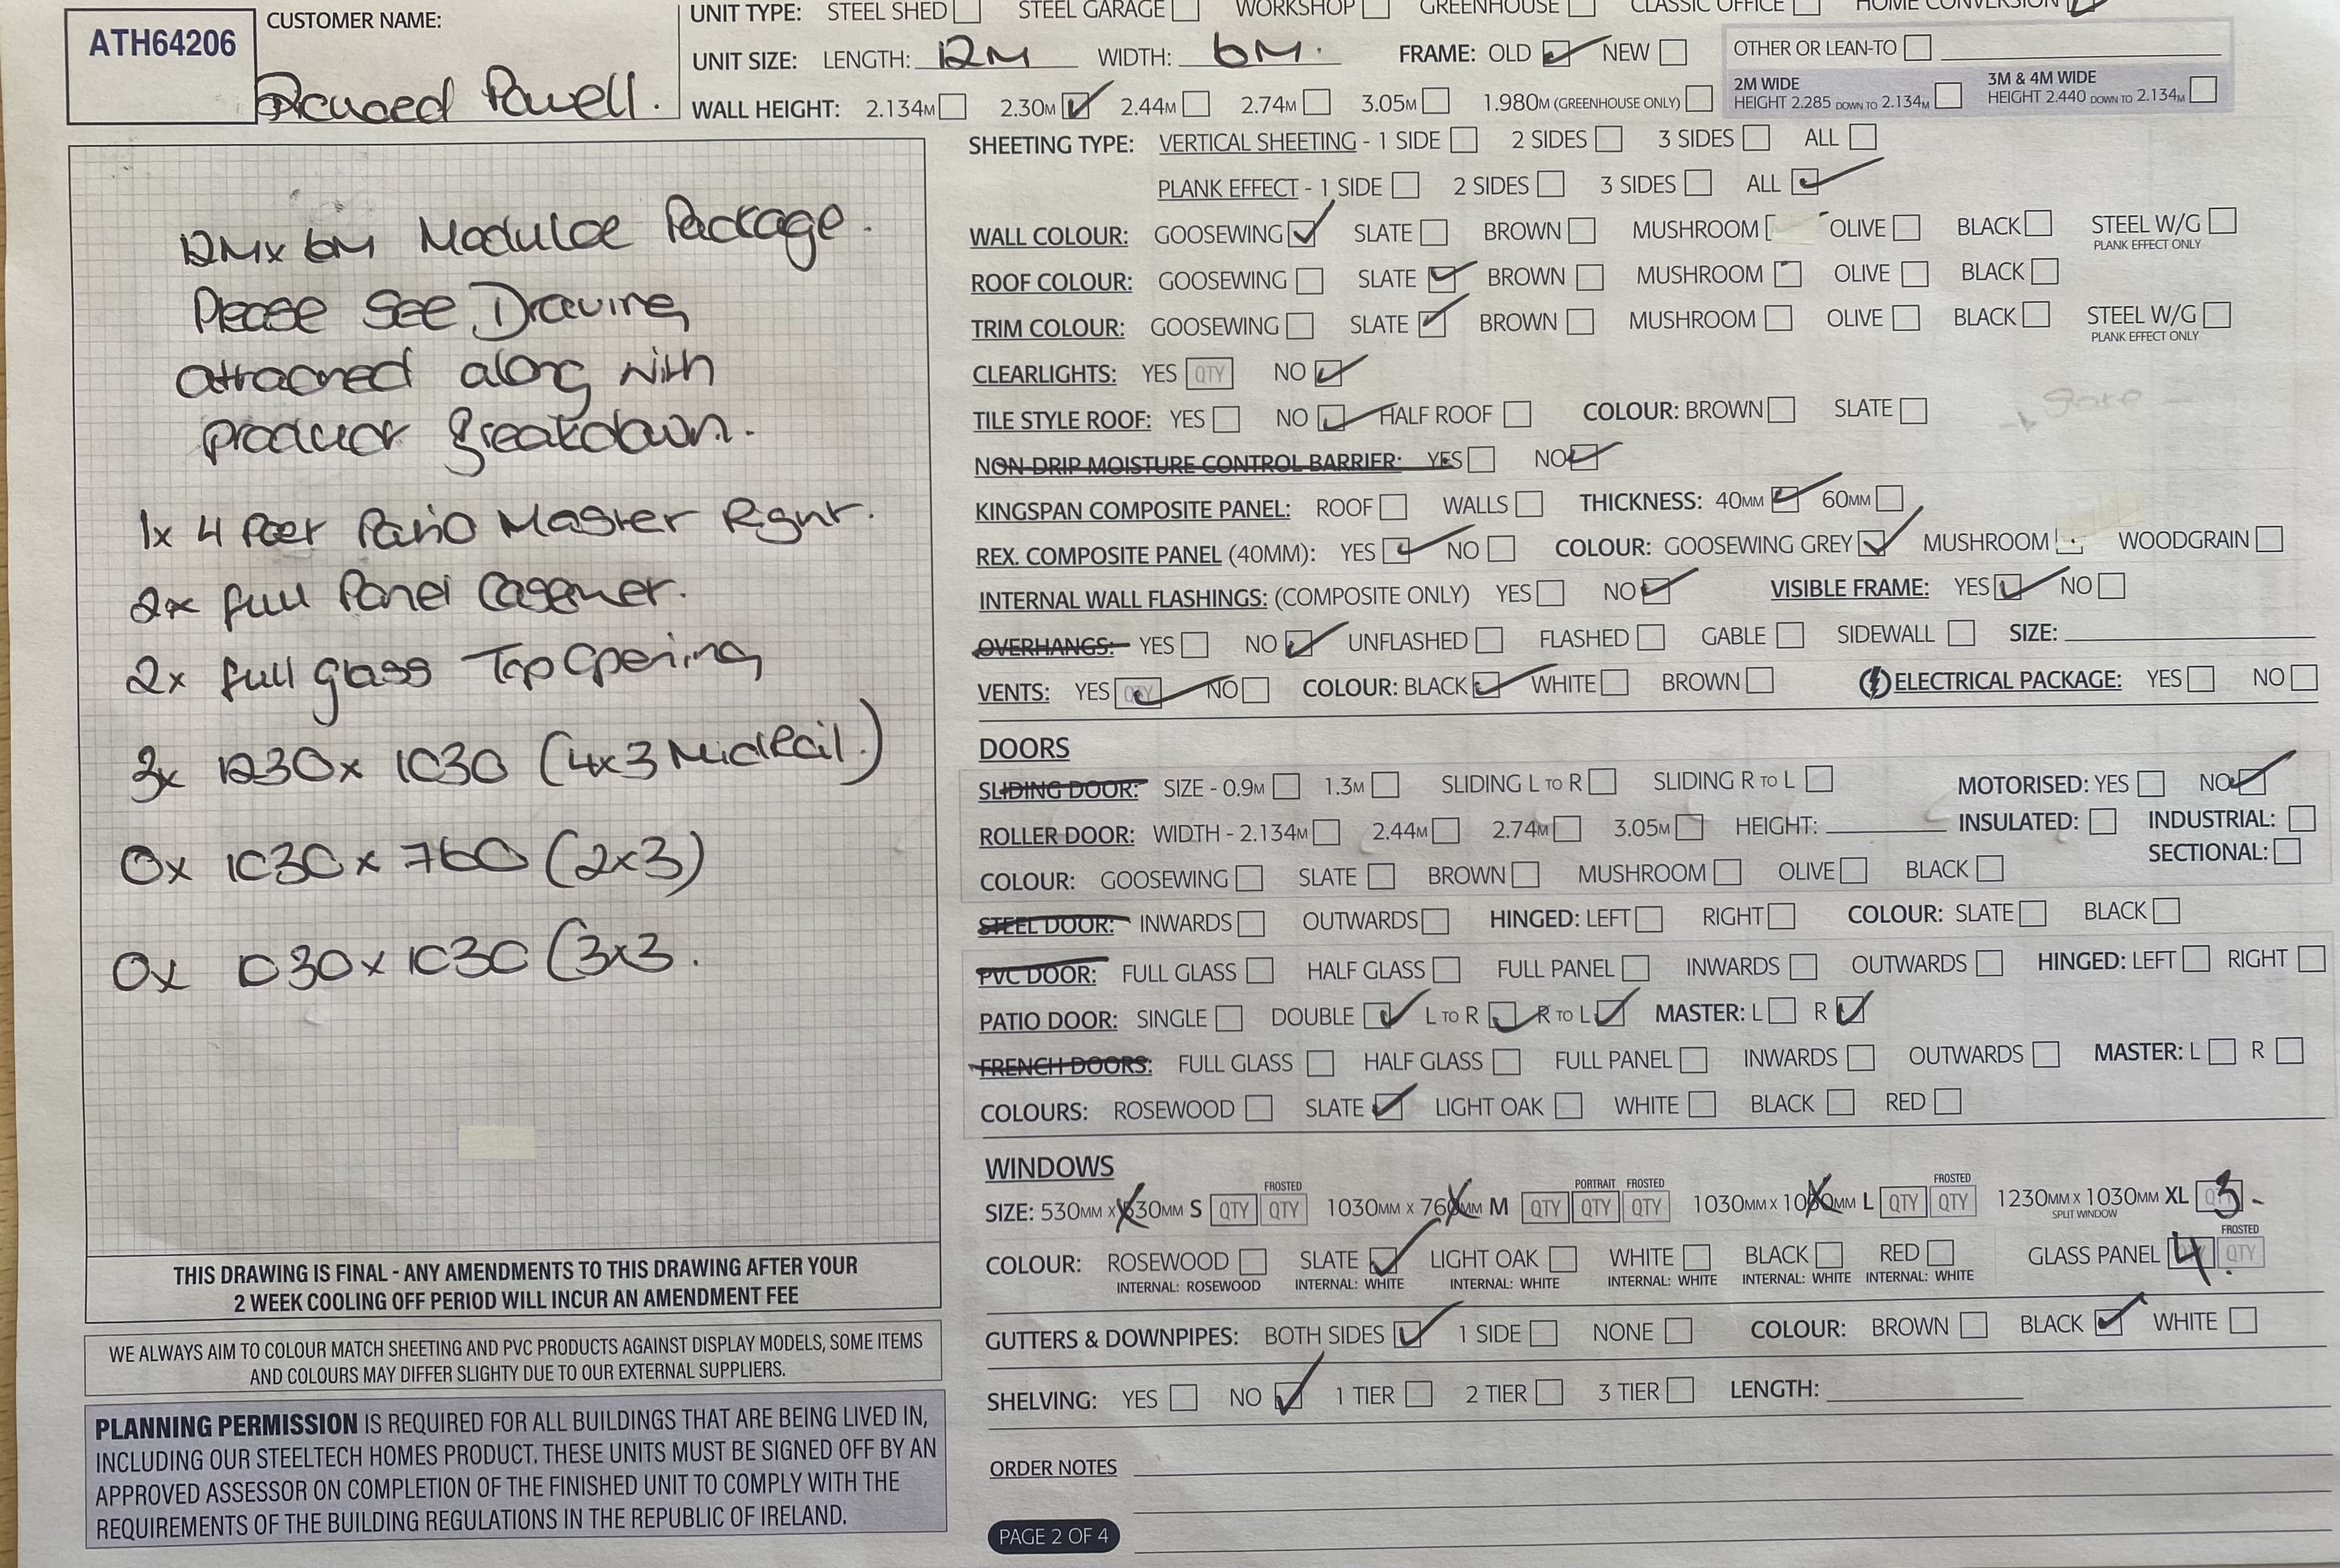 ATH64206
CUSTOMER NAME:
Powell.
UNIT TYPE: STEEL SHED STEEL GARAGE WORKSHOP GREENHOUSE CLASSIC OFFICE HOME CONVERSION
UNIT SIZE: LENGTH: 12M WIDTH: 6M. FRAME: OLD NEW
OTHER OR LEAN-TO
WALL HEIGHT: 2.134M 2.30M 2.44M 2.74M 3.05M 1.980M (GREENHOUSE ONLY)
2M WIDE
HEIGHT 2.285 DOWN TO 2.134M
3M & 4M WIDE
HEIGHT 2.440 DOWN TO 2.134M
12Mx 6M Modular Package.
Please See Drawing
attached along with
product Breakdown.
1x 4 Part Patio Master Right.
2x full Panel Casement.
2x full glass Top Opening
3x 1230x 1030 (4x3 Midrail.)
0x 1030x 760 (2x3)
0x 1030x1030 (3x3.
THIS DRAWING IS FINAL - ANY AMENDMENTS TO THIS DRAWING AFTER YOUR
2 WEEK COOLING OFF PERIOD WILL INCUR AN AMENDMENT FEE
WE ALWAYS AIM TO COLOUR MATCH SHEETING AND PVC PRODUCTS AGAINST DISPLAY MODELS, SOME ITEMS
AND COLOURS MAY DIFFER SLIGHTY DUE TO OUR EXTERNAL SUPPLIERS.
PLANNING PERMISSION IS REQUIRED FOR ALL BUILDINGS THAT ARE BEING LIVED IN,
INCLUDING OUR STEELTECH HOMES PRODUCT. THESE UNITS MUST BE SIGNED OFF BY AN
APPROVED ASSESSOR ON COMPLETION OF THE FINISHED UNIT TO COMPLY WITH THE
REQUIREMENTS OF THE BUILDING REGULATIONS IN THE REPUBLIC OF IRELAND.
SHEETING TYPE: VERTICAL SHEETING - 1 SIDE 2 SIDES 3 SIDES ALL
PLANK EFFECT - 1 SIDE 2 SIDES 3 SIDES ALL
WALL COLOUR: GOOSEWING SLATE BROWN MUSHROOM OLIVE BLACK STEEL W/G
PLANK EFFECT ONLY
ROOF COLOUR: GOOSEWING SLATE BROWN MUSHROOM OLIVE BLACK
TRIM COLOUR: GOOSEWING SLATE BROWN MUSHROOM OLIVE BLACK STEEL W/G
PLANK EFFECT ONLY
CLEARLIGHTS: YES QTY NO
TILE STYLE ROOF: YES NO HALF ROOF COLOUR: BROWN SLATE
NON-DRIP MOISTURE CONTROL BARRIER: YES NO
KINGSPAN COMPOSITE PANEL: ROOF WALLS THICKNESS: 40MM 60MM
REX. COMPOSITE PANEL (40MM): YES NO COLOUR: GOOSEWING GREY MUSHROOM WOODGRAIN
INTERNAL WALL FLASHINGS: (COMPOSITE ONLY) YES NO VISIBLE FRAME: YES NO
OVERHANGS: YES NO UNFLASHED FLASHED GABLE SIDEWALL SIZE:
VENTS: YES QTY NO COLOUR: BLACK WHITE BROWN ELECTRICAL PACKAGE: YES NO
DOORS
SLIDING DOOR: SIZE - 0.9M 1.3M SLIDING L TO R SLIDING R TO L MOTORISED: YES NO
ROLLER DOOR: WIDTH - 2.134M 2.44M 2.74M 3.05M HEIGHT: INSULATED: INDUSTRIAL:
SECTIONAL:
COLOUR: GOOSEWING SLATE BROWN MUSHROOM OLIVE BLACK
STEEL DOOR: INWARDS OUTWARDS HINGED: LEFT RIGHT COLOUR: SLATE BLACK
PVC DOOR: FULL GLASS HALF GLASS FULL PANEL INWARDS OUTWARDS HINGED: LEFT RIGHT
PATIO DOOR: SINGLE DOUBLE L TO R R TO L MASTER: L R
FRENCH DOORS: FULL GLASS HALF GLASS FULL PANEL INWARDS OUTWARDS MASTER: L R
COLOURS: ROSEWOOD SLATE LIGHT OAK WHITE BLACK RED
WINDOWS
FROSTED PORTRAIT FROSTED FROSTED
SIZE: 530MM X 530MM S QTY QTY 1030MM X 760MM M QTY QTY QTY 1030MM X 1030MM L QTY QTY 1230MM X 1030MM XL 3
SPLIT WINDOW
FROSTED
COLOUR: ROSEWOOD SLATE LIGHT OAK WHITE BLACK RED GLASS PANEL 4 QTY
INTERNAL: ROSEWOOD INTERNAL: WHITE INTERNAL: WHITE INTERNAL: WHITE INTERNAL: WHITE INTERNAL: WHITE
GUTTERS & DOWNPIPES: BOTH SIDES 1 SIDE NONE COLOUR: BROWN BLACK WHITE
SHELVING: YES NO 1 TIER 2 TIER 3 TIER LENGTH:
ORDER NOTES
PAGE 2 OF 4